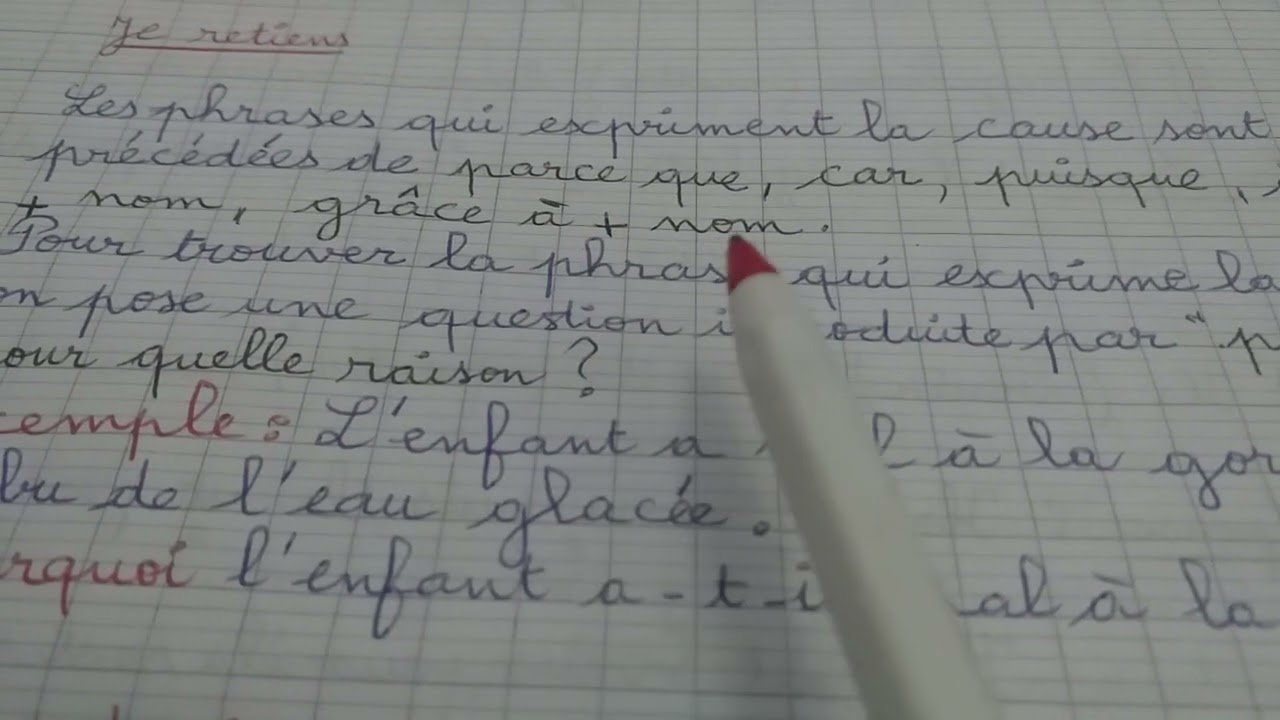 Je retiens
Les phrases qui expriment la cause sont
précédées de parce que, car, puisque,
+ nom, grâce à + nom.
Pour trouver la phras qui exprime la
on pose une question i oduite par " p
our quelle raison ?
emple : L'enfant a l à la gor
bu de l'eau glacée.
rquoi l'enfant a-t-i al à la